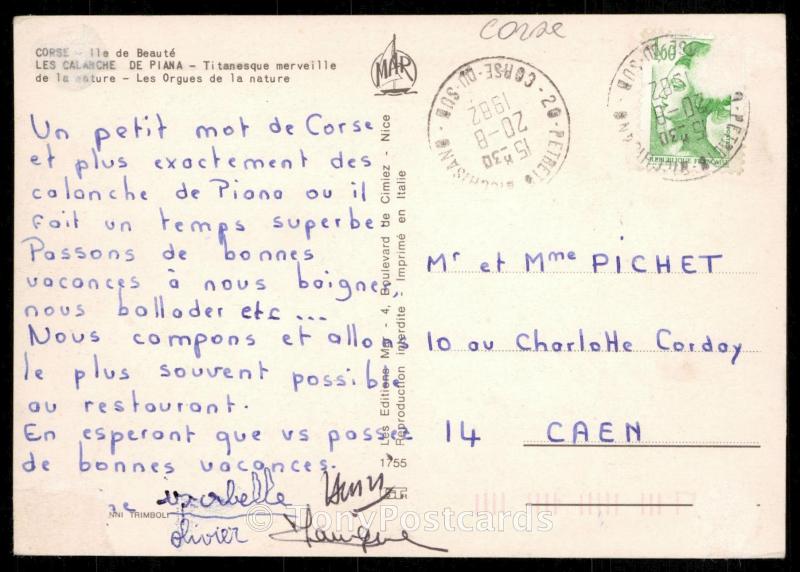 Corse
CORSE - Ile de Beauté
LES CALANCHE DE PIANA - Titanesque merveille
de la nature - Les Orgues de la nature
MAR
Un petit mot de Corse
et plus exactement des
calanche de Piana ou il
fait un temps superbe
Passons de bonnes
vacances à nous baigner,
nous ballader etc...
Nous campons et allons
le plus souvent possible
au restaurant.
En esperant que vs passez
de bonnes vacances.
olivier
NNI TRIMBOLI
1755
Les Editions Mar - 4, Boulevard de Cimiez - Nice
Reproduction interdite - Imprimé en Italie
20 - PETRETO BICCHISANO
CORSE-DU-SUD
15 H30
20-8
1982
20 - PETRETO BICCHISANO
CORSE-DU-SUD
15 H30
20-8
1982
1,60
REPUBLIQUE FRANÇAISE
Mr et Mme PICHET
10 au Charlotte Corday
14 CAEN
© TonyPostcards